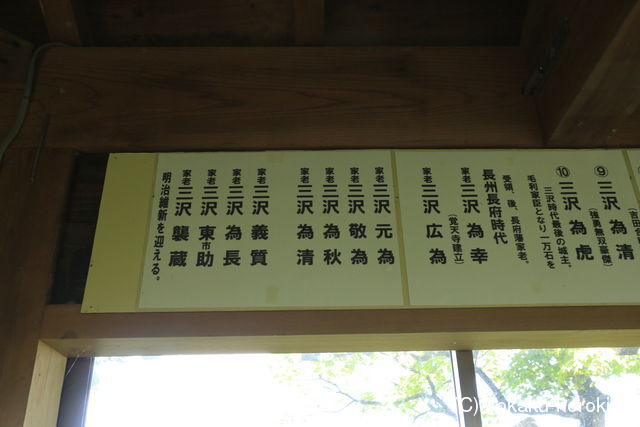 ⑨三沢 為清
(強勇無双豪傑)
⑩三沢 為虎
三沢時代最後の城主。
毛利家臣となり一万石を
受領。後、長府藩家老。
長州長府時代
家老三沢 為幸
(覚天寺建立)
家老三沢 広為
家老三沢 元為
家老三沢 敬為
家老三沢 為秋
家老三沢 為清
家老三沢 義質
家老三沢 為長
家老三沢 東市助
家老三沢 襲蔵
明治維新を迎える。